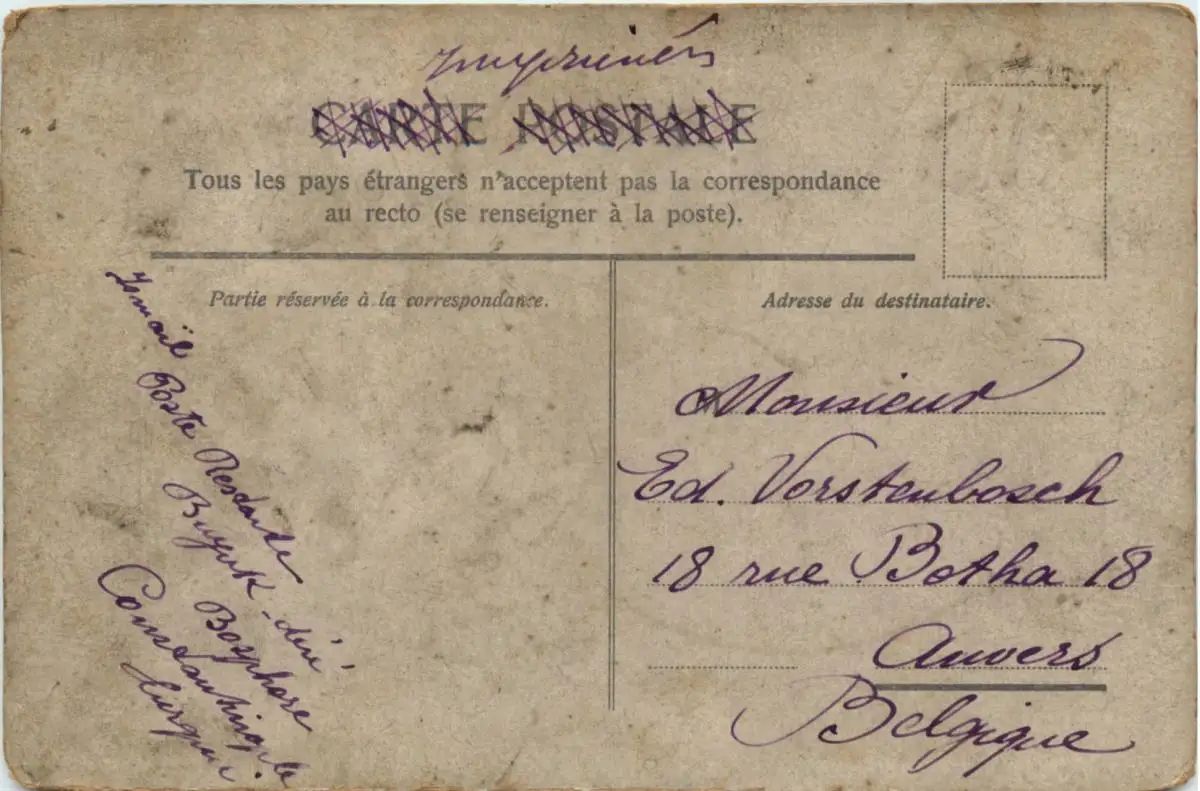 Imprimés
CARTE POSTALE
Tous les pays étrangers n'acceptent pas la correspondance
au recto (se renseigner à la poste).
Partie réservée à la correspondance.
Ismaïl
Poste Restante
Buyuk-déré
Bosphore
Constantinople
Turquie
Adresse du destinataire.
Monsieur
Ed. Vorstenbosch
18 rue Botha 18
Anvers
Belgique